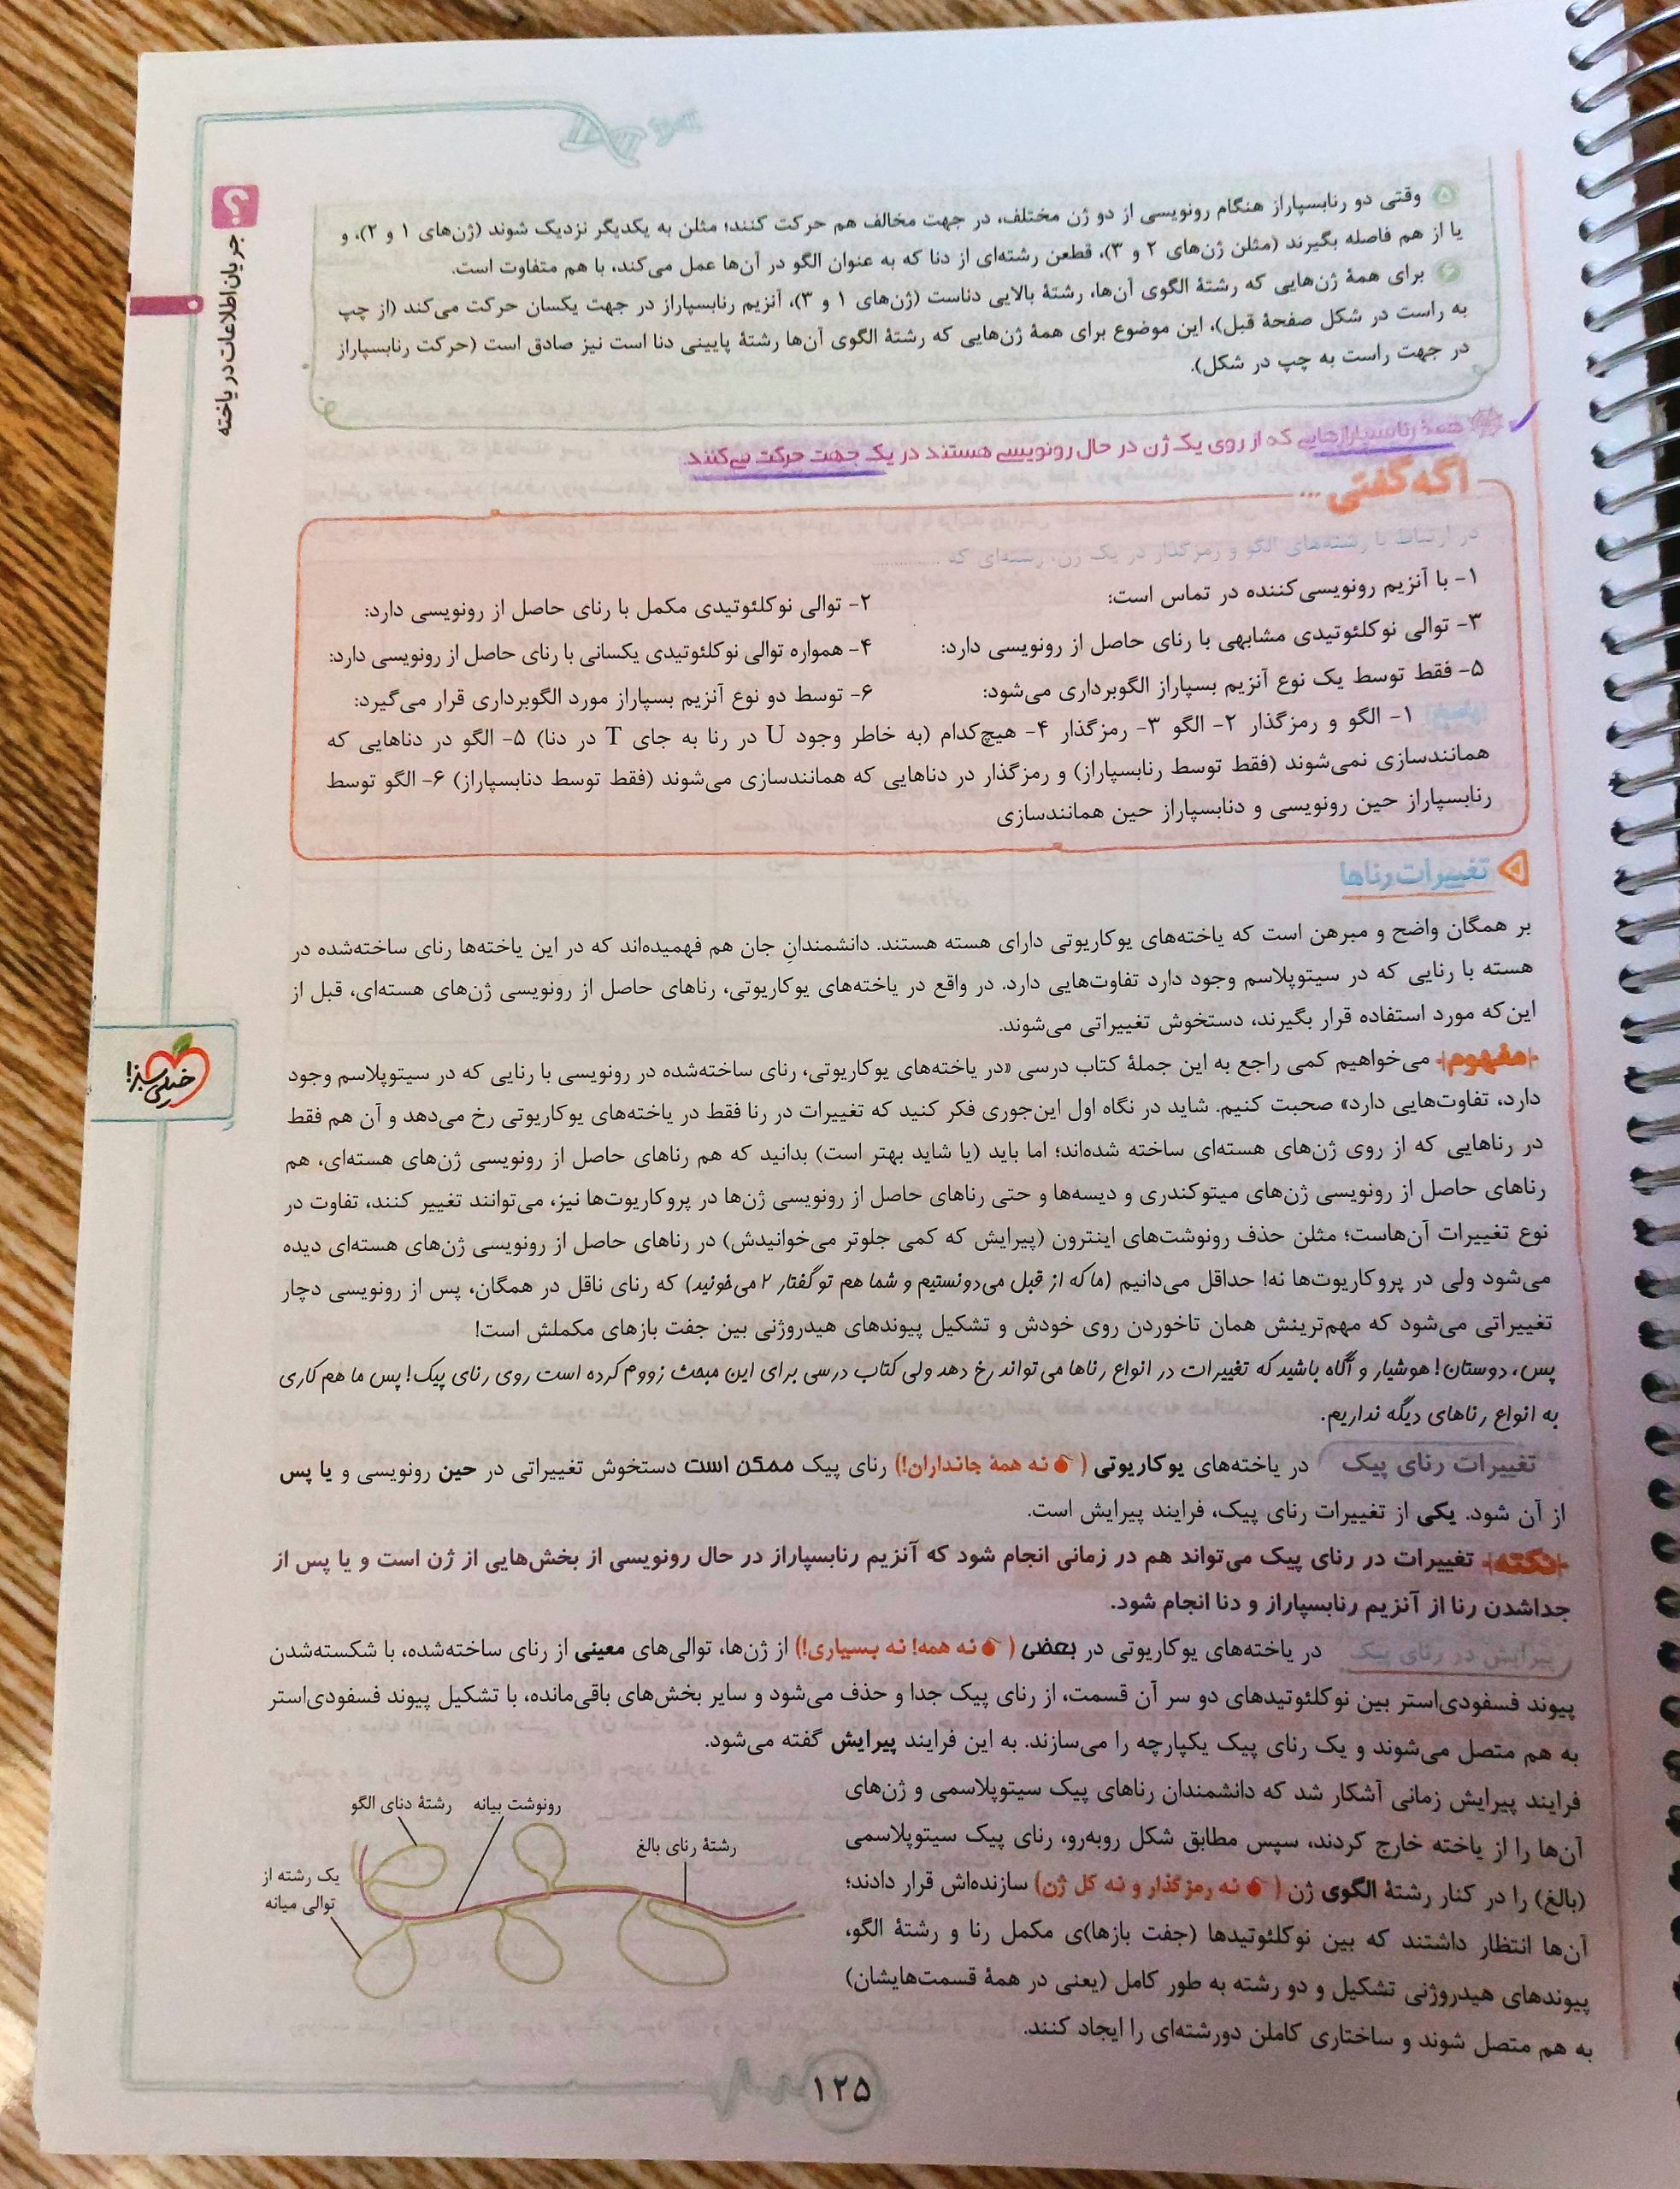 جریان اطلاعات در یاخته
۵ وقتی دو رنابسپاراز هنگام رونویسی از دو ژن مختلف، در جهت مخالف هم حرکت کنند؛ مثلن به یکدیگر نزدیک شوند (ژن‌های ۱ و ۲)، و
یا از هم فاصله بگیرند (مثلن ژن‌های ۲ و ۳)، قطعن رشته‌ای از دنا که به عنوان الگو در آن‌ها عمل می‌کند، با هم متفاوت است.
۶ برای همهٔ ژن‌هایی که رشتهٔ الگوی آن‌ها، رشتهٔ بالایی دناست (ژن‌های ۱ و ۳)، آنزیم رنابسپاراز در جهت یکسان حرکت می‌کند (از چپ
به راست در شکل صفحهٔ قبل)، این موضوع برای همهٔ ژن‌هایی که رشتهٔ الگوی آن‌ها رشتهٔ پایینی دنا است نیز صادق است (حرکت رنابسپاراز
در جهت راست به چپ در شکل).
همهٔ رنابسپارازهایی که از روی یک ژن در حال رونویسی هستند در یک جهت حرکت می‌کنند
اگه گفتی ...
در ارتباط با رشته‌های الگو و رمزگذار در یک ژن، رشته‌ای که ............
۱- با آنزیم رونویسی‌کننده در تماس است:
۲- توالی نوکلئوتیدی مکمل با رنای حاصل از رونویسی دارد:
۳- توالی نوکلئوتیدی مشابهی با رنای حاصل از رونویسی دارد:
۴- همواره توالی نوکلئوتیدی یکسانی با رنای حاصل از رونویسی دارد:
۵- فقط توسط یک نوع آنزیم بسپاراز الگوبرداری می‌شود:
۶- توسط دو نوع آنزیم بسپاراز مورد الگوبرداری قرار می‌گیرد:
۱- الگو و رمزگذار ۲- الگو ۳- رمزگذار ۴- هیچ‌کدام (به خاطر وجود U در رنا به جای T در دنا) ۵- الگو در دناهایی که
همانندسازی نمی‌شوند (فقط توسط رنابسپاراز) و رمزگذار در دناهایی که همانندسازی می‌شوند (فقط توسط دنابسپاراز) ۶- الگو توسط
رنابسپاراز حین رونویسی و دنابسپاراز حین همانندسازی
تغییرات رناها
بر همگان واضح و مبرهن است که یاخته‌های یوکاریوتی دارای هسته هستند. دانشمندانِ جان هم فهمیده‌اند که در این یاخته‌ها رنای ساخته‌شده در
هسته با رنایی که در سیتوپلاسم وجود دارد تفاوت‌هایی دارد. در واقع در یاخته‌های یوکاریوتی، رناهای حاصل از رونویسی ژن‌های هسته‌ای، قبل از
این‌که مورد استفاده قرار بگیرند، دستخوش تغییراتی می‌شوند.
مفهوم می‌خواهیم کمی راجع به این جملهٔ کتاب درسی «در یاخته‌های یوکاریوتی، رنای ساخته‌شده در رونویسی با رنایی که در سیتوپلاسم وجود
دارد، تفاوت‌هایی دارد» صحبت کنیم. شاید در نگاه اول این‌جوری فکر کنید که تغییرات در رنا فقط در یاخته‌های یوکاریوتی رخ می‌دهد و آن هم فقط
در رناهایی که از روی ژن‌های هسته‌ای ساخته شده‌اند؛ اما باید (یا شاید بهتر است) بدانید که هم رناهای حاصل از رونویسی ژن‌های هسته‌ای، هم
رناهای حاصل از رونویسی ژن‌های میتوکندری و دیسه‌ها و حتی رناهای حاصل از رونویسی ژن‌ها در پروکاریوت‌ها نیز، می‌توانند تغییر کنند، تفاوت در
نوع تغییرات آن‌هاست؛ مثلن حذف رونوشت‌های اینترون (پیرایش که کمی جلوتر می‌خوانیدش) در رناهای حاصل از رونویسی ژن‌های هسته‌ای دیده
می‌شود ولی در پروکاریوت‌ها نه! حداقل می‌دانیم (ما که از قبل می‌دونستیم و شما هم تو گفتار ۲ می‌خونید) که رنای ناقل در همگان، پس از رونویسی دچار
تغییراتی می‌شود که مهم‌ترینش همان تاخوردن روی خودش و تشکیل پیوندهای هیدروژنی بین جفت بازهای مکملش است!
پس، دوستان! هوشیار و آگاه باشید که تغییرات در انواع رناها می‌تواند رخ دهد ولی کتاب درسی برای این مبحث زووم کرده است روی رنای پیک! پس ما هم کاری
به انواع رناهای دیگه نداریم.
تغییرات رنای پیک در یاخته‌های یوکاریوتی (نه همهٔ جانداران!) رنای پیک ممکن است دستخوش تغییراتی در حین رونویسی و یا پس
از آن شود. یکی از تغییرات رنای پیک، فرایند پیرایش است.
نکته تغییرات در رنای پیک می‌تواند هم در زمانی انجام شود که آنزیم رنابسپاراز در حال رونویسی از بخش‌هایی از ژن است و یا پس از
جداشدن رنا از آنزیم رنابسپاراز و دنا انجام شود.
پیرایش در رنای پیک در یاخته‌های یوکاریوتی در بعضی (نه همه! نه بسیاری!) از ژن‌ها، توالی‌های معینی از رنای ساخته‌شده، با شکسته‌شدن
پیوند فسفودی‌استر بین نوکلئوتیدهای دو سر آن قسمت، از رنای پیک جدا و حذف می‌شود و سایر بخش‌های باقی‌مانده، با تشکیل پیوند فسفودی‌استر
به هم متصل می‌شوند و یک رنای پیک یکپارچه را می‌سازند. به این فرایند پیرایش گفته می‌شود.
فرایند پیرایش زمانی آشکار شد که دانشمندان رناهای پیک سیتوپلاسمی و ژن‌های
آن‌ها را از یاخته خارج کردند، سپس مطابق شکل روبه‌رو، رنای پیک سیتوپلاسمی
(بالغ) را در کنار رشتهٔ الگوی ژن (نه رمزگذار و نه کل ژن) سازنده‌اش قرار دادند؛
آن‌ها انتظار داشتند که بین نوکلئوتیدها (جفت بازها)ی مکمل رنا و رشتهٔ الگو،
پیوندهای هیدروژنی تشکیل و دو رشته به طور کامل (یعنی در همهٔ قسمت‌هایشان)
به هم متصل شوند و ساختاری کاملن دورشته‌ای را ایجاد کنند.
رشتهٔ رنای بالغ
رونوشت بیانه
رشتهٔ دنای الگو
یک رشته از
توالی میانه
خیلی سبز!
۱۲۵